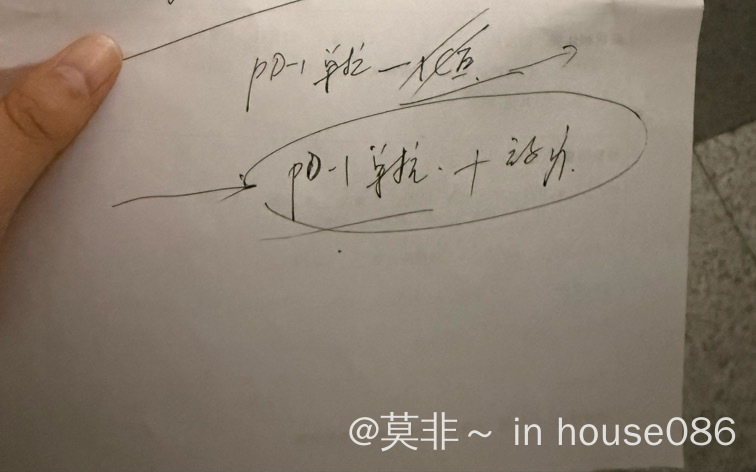 PD-1单抗
PD-1单抗 + 放疗
@莫非~ in house086